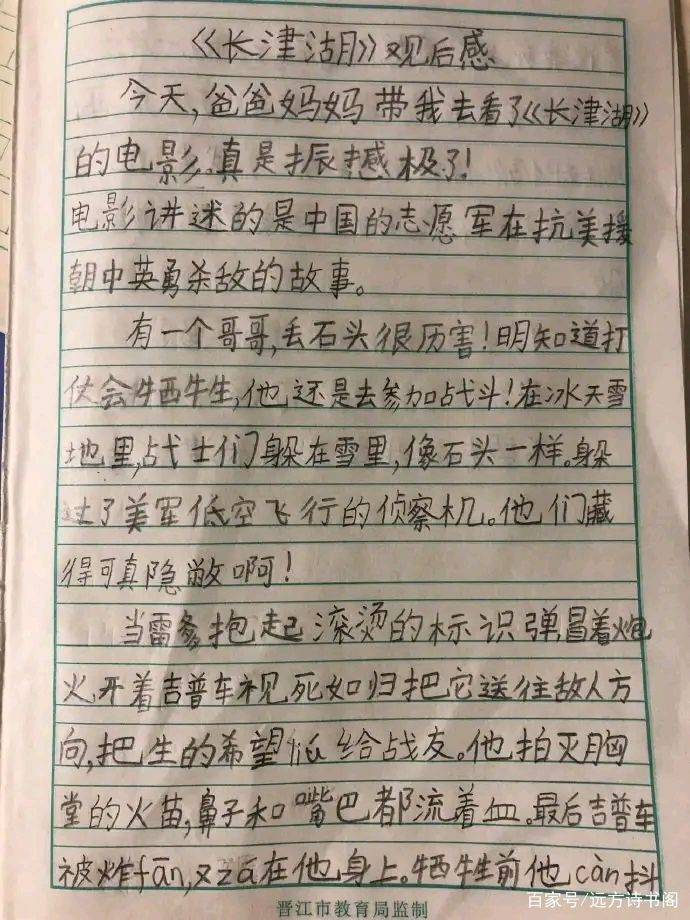 《长津湖》观后感
今天,爸爸妈妈带我去看了《长津湖》
的电影,真是振撼极了!
电影讲迷的是中国的志愿军在抗美援
朝中英勇杀敌的故事。
有一个哥哥,丢石头很厉害!明知道打
仗会牺牲,他还是去参加战斗!在冰天雪
地里,战士们躲在雪里,像石头一样。躲
过了美军低空飞行的侦察机。他们藏
得可真隐敝啊!
当雷爹抱起滚烫的标识弹冒着炮
火,开着吉普车视死如归把它送往敌人方
向,把生的希望liú给战友。他拍灭胸
堂的火苗,鼻子和嘴巴都流着血。最后吉普车
被炸fān,又zá在他身上。牺牲前他càn抖
晋江市教育局监制
百家号/远方诗书阁